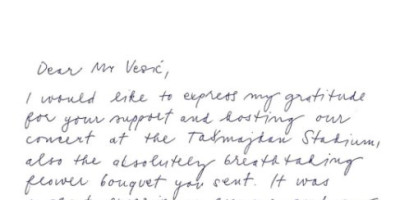 Dear Mr Vesić,
I would like to express my gratitude
for your support and hosting our
concert at the Tašmajdan Stadium,
also the absolutely breathtaking
flower bouquet you sent. It was